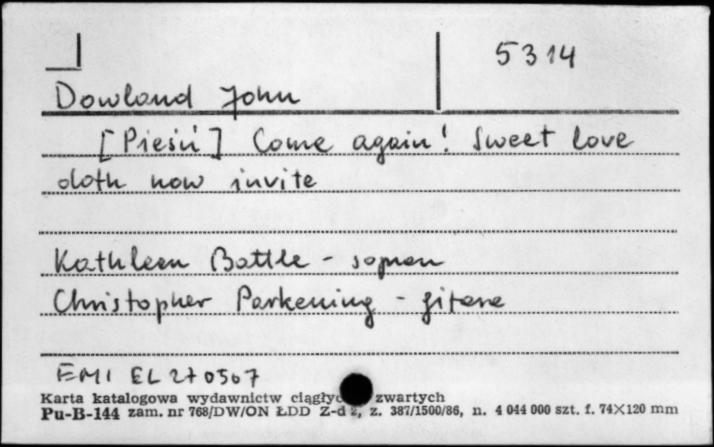 5314
Dowland John
[Pieśń] Come again! Sweet love
doth now invite
Kathleen Battle - sopran
Christopher Parkening - gitara
EMI EL 270507
Karta katalogowa wydawnictw zwartych
Pu-B-144 zam. nr 768/DW/ON ŁDD z. 387/1500/86, n. 4 044 000 szt. f. 74×120 mm